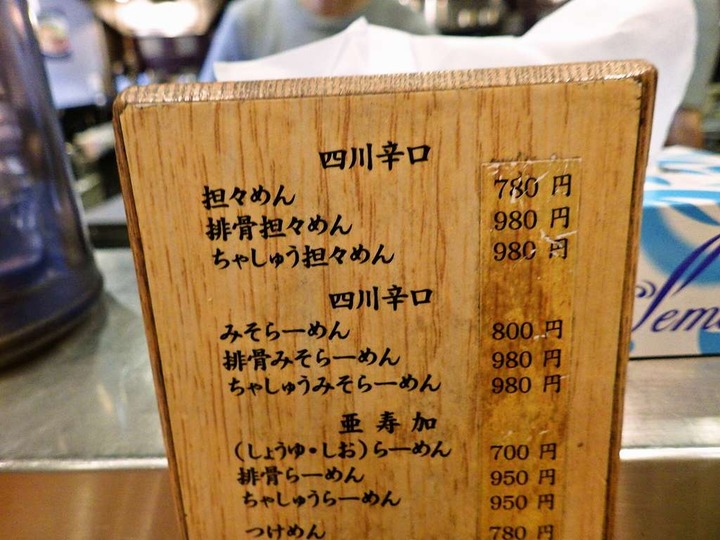 四川辛口
担々めん 780円
排骨担々めん 980円
ちゃしゅう担々めん 980円
四川辛口
みそらーめん 800円
排骨みそらーめん 980円
ちゃしゅうみそらーめん 980円
亜寿加
(しょうゆ・しお)らーめん 700円
排骨らーめん 950円
ちゃしゅうらーめん 950円
つけめん 780円